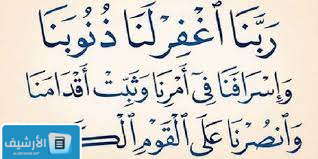 رَبَّنَا ٱغْفِرْ لَنَا ذُنُوبَنَا
وَإِسْرَافَنَا فِىٓ أَمْرِنَا وَثَبِّتْ أَقْدَامَنَا
وَٱنصُرْنَا عَلَى ٱلْقَوْمِ
الأرشيف